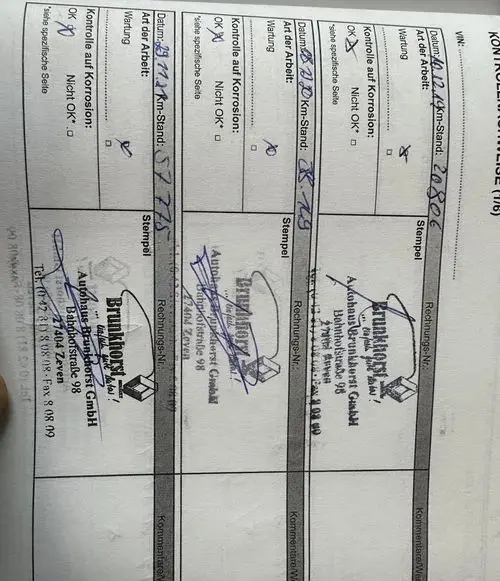 KONTROLLNACHWEISE (1/6)
VIN:
Datum: 10.12.19 Km-Stand: 20806
Rechnungs-Nr.:
Kommentare/
Art der Arbeit:
Stempel
Wartung
Kontrolle auf Korrosion:
OK Nicht OK*
*siehe spezifische Seite
Brunkhorst
... einfach gute Autos!
Autohaus Brunkhorst GmbH
Bahnhofstraße 98
27404 Zeven
Datum: Km-Stand:
Rechnungs-Nr.:
Kommentare/W
Art der Arbeit:
Stempel
Wartung
Kontrolle auf Korrosion:
OK Nicht OK*
*siehe spezifische Seite
Brunkhorst
Autohaus Brunkhorst GmbH
Bahnhofstraße 98
27404 Zeven
Datum: 29.11.21 Km-Stand: 57775
Rechnungs-Nr.:
Kommentare/W
Art der Arbeit:
Stempel
Wartung
Kontrolle auf Korrosion:
OK Nicht OK*
*siehe spezifische Seite
Brunkhorst
... einfach gute Autos!
Autohaus Brunkhorst GmbH
Bahnhofstraße 98
27404 Zeven
Tel. 0 42 81 / 8 08 08 · Fax 8 08 09